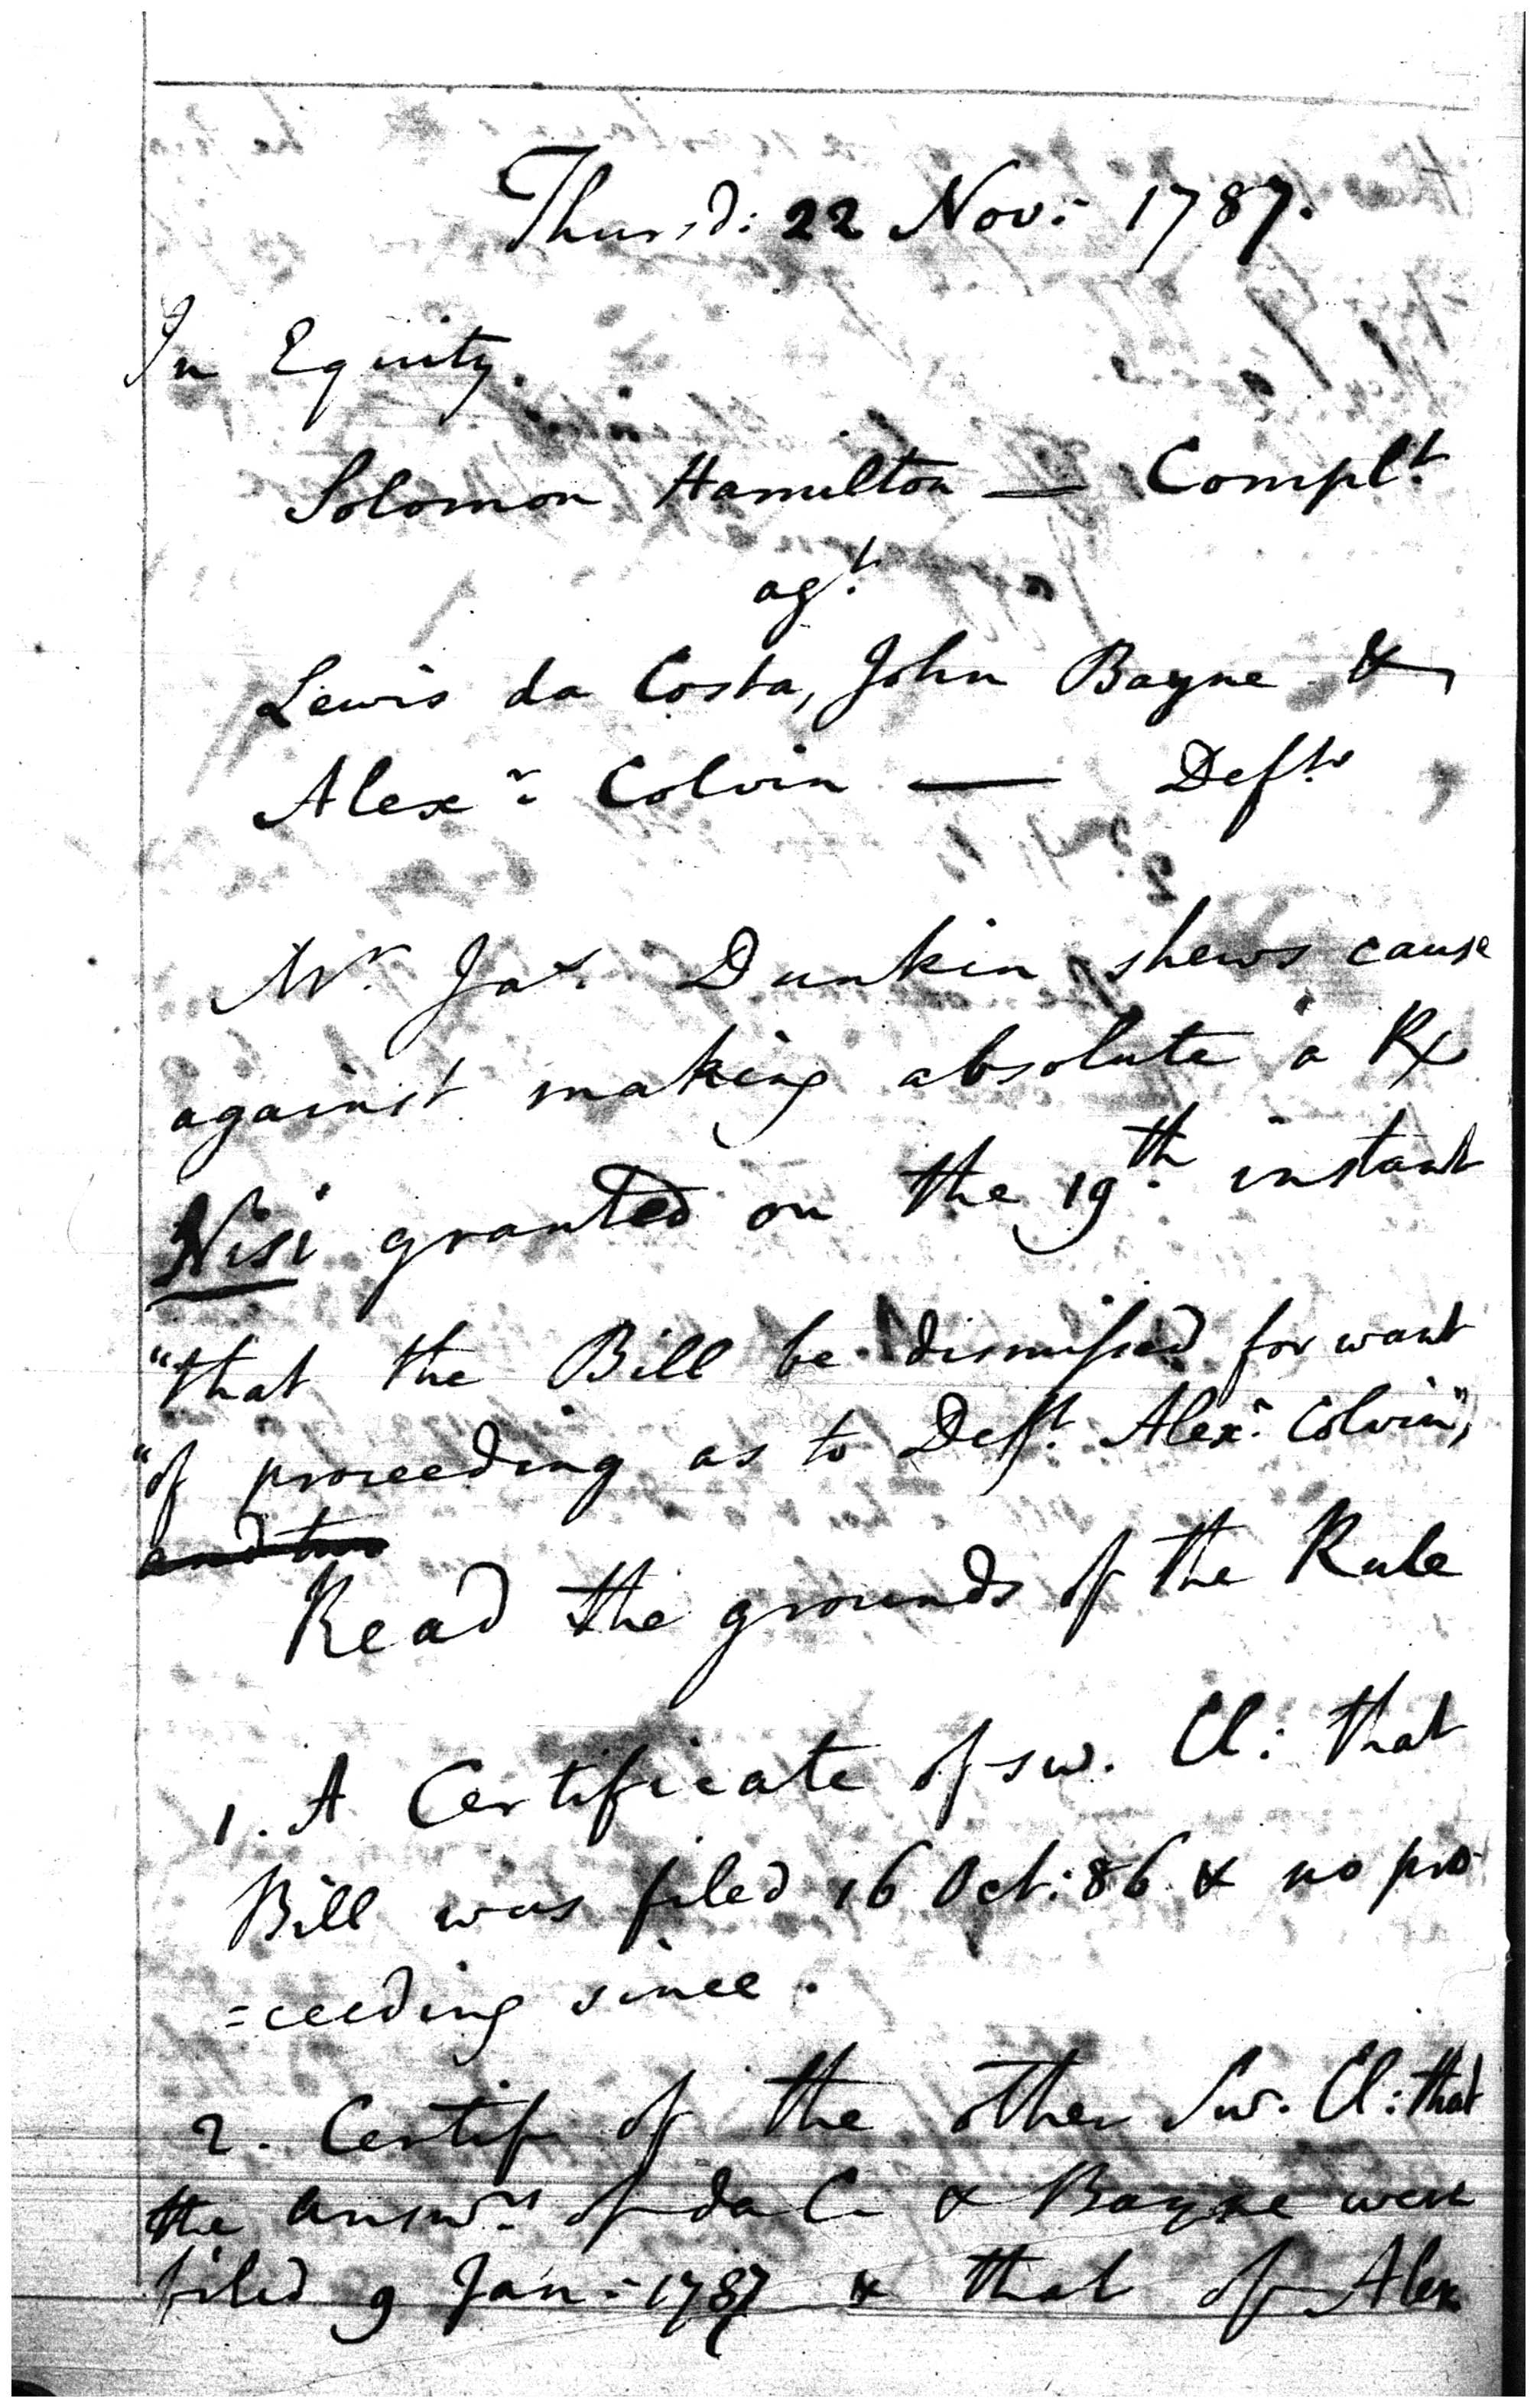 Thursd: 22 Nov: 1787.
In Equity.
Solomon Hamilton — Complt.
agt.
Lewis da Costa, John Bayne &
Alexr: Colvin — Defts
Mr. Jas. Dunkin shews cause
against making absolute a Rx
Nisi granted on the 19th. instant
"that the Bill be dismissed for want
"of proceeding as to Deft. Alexr. Colvin",
and two
Read the grounds of the Rule
1. A Certificate of sw. Cl: that
Bill was filed 16 Oct: 86 & no pro
=ceeding since.
2. Certif of the other Sw. Cl: that
the answrs of da C & Bayne were
filed 9 Jan: 1787 & that of Alex